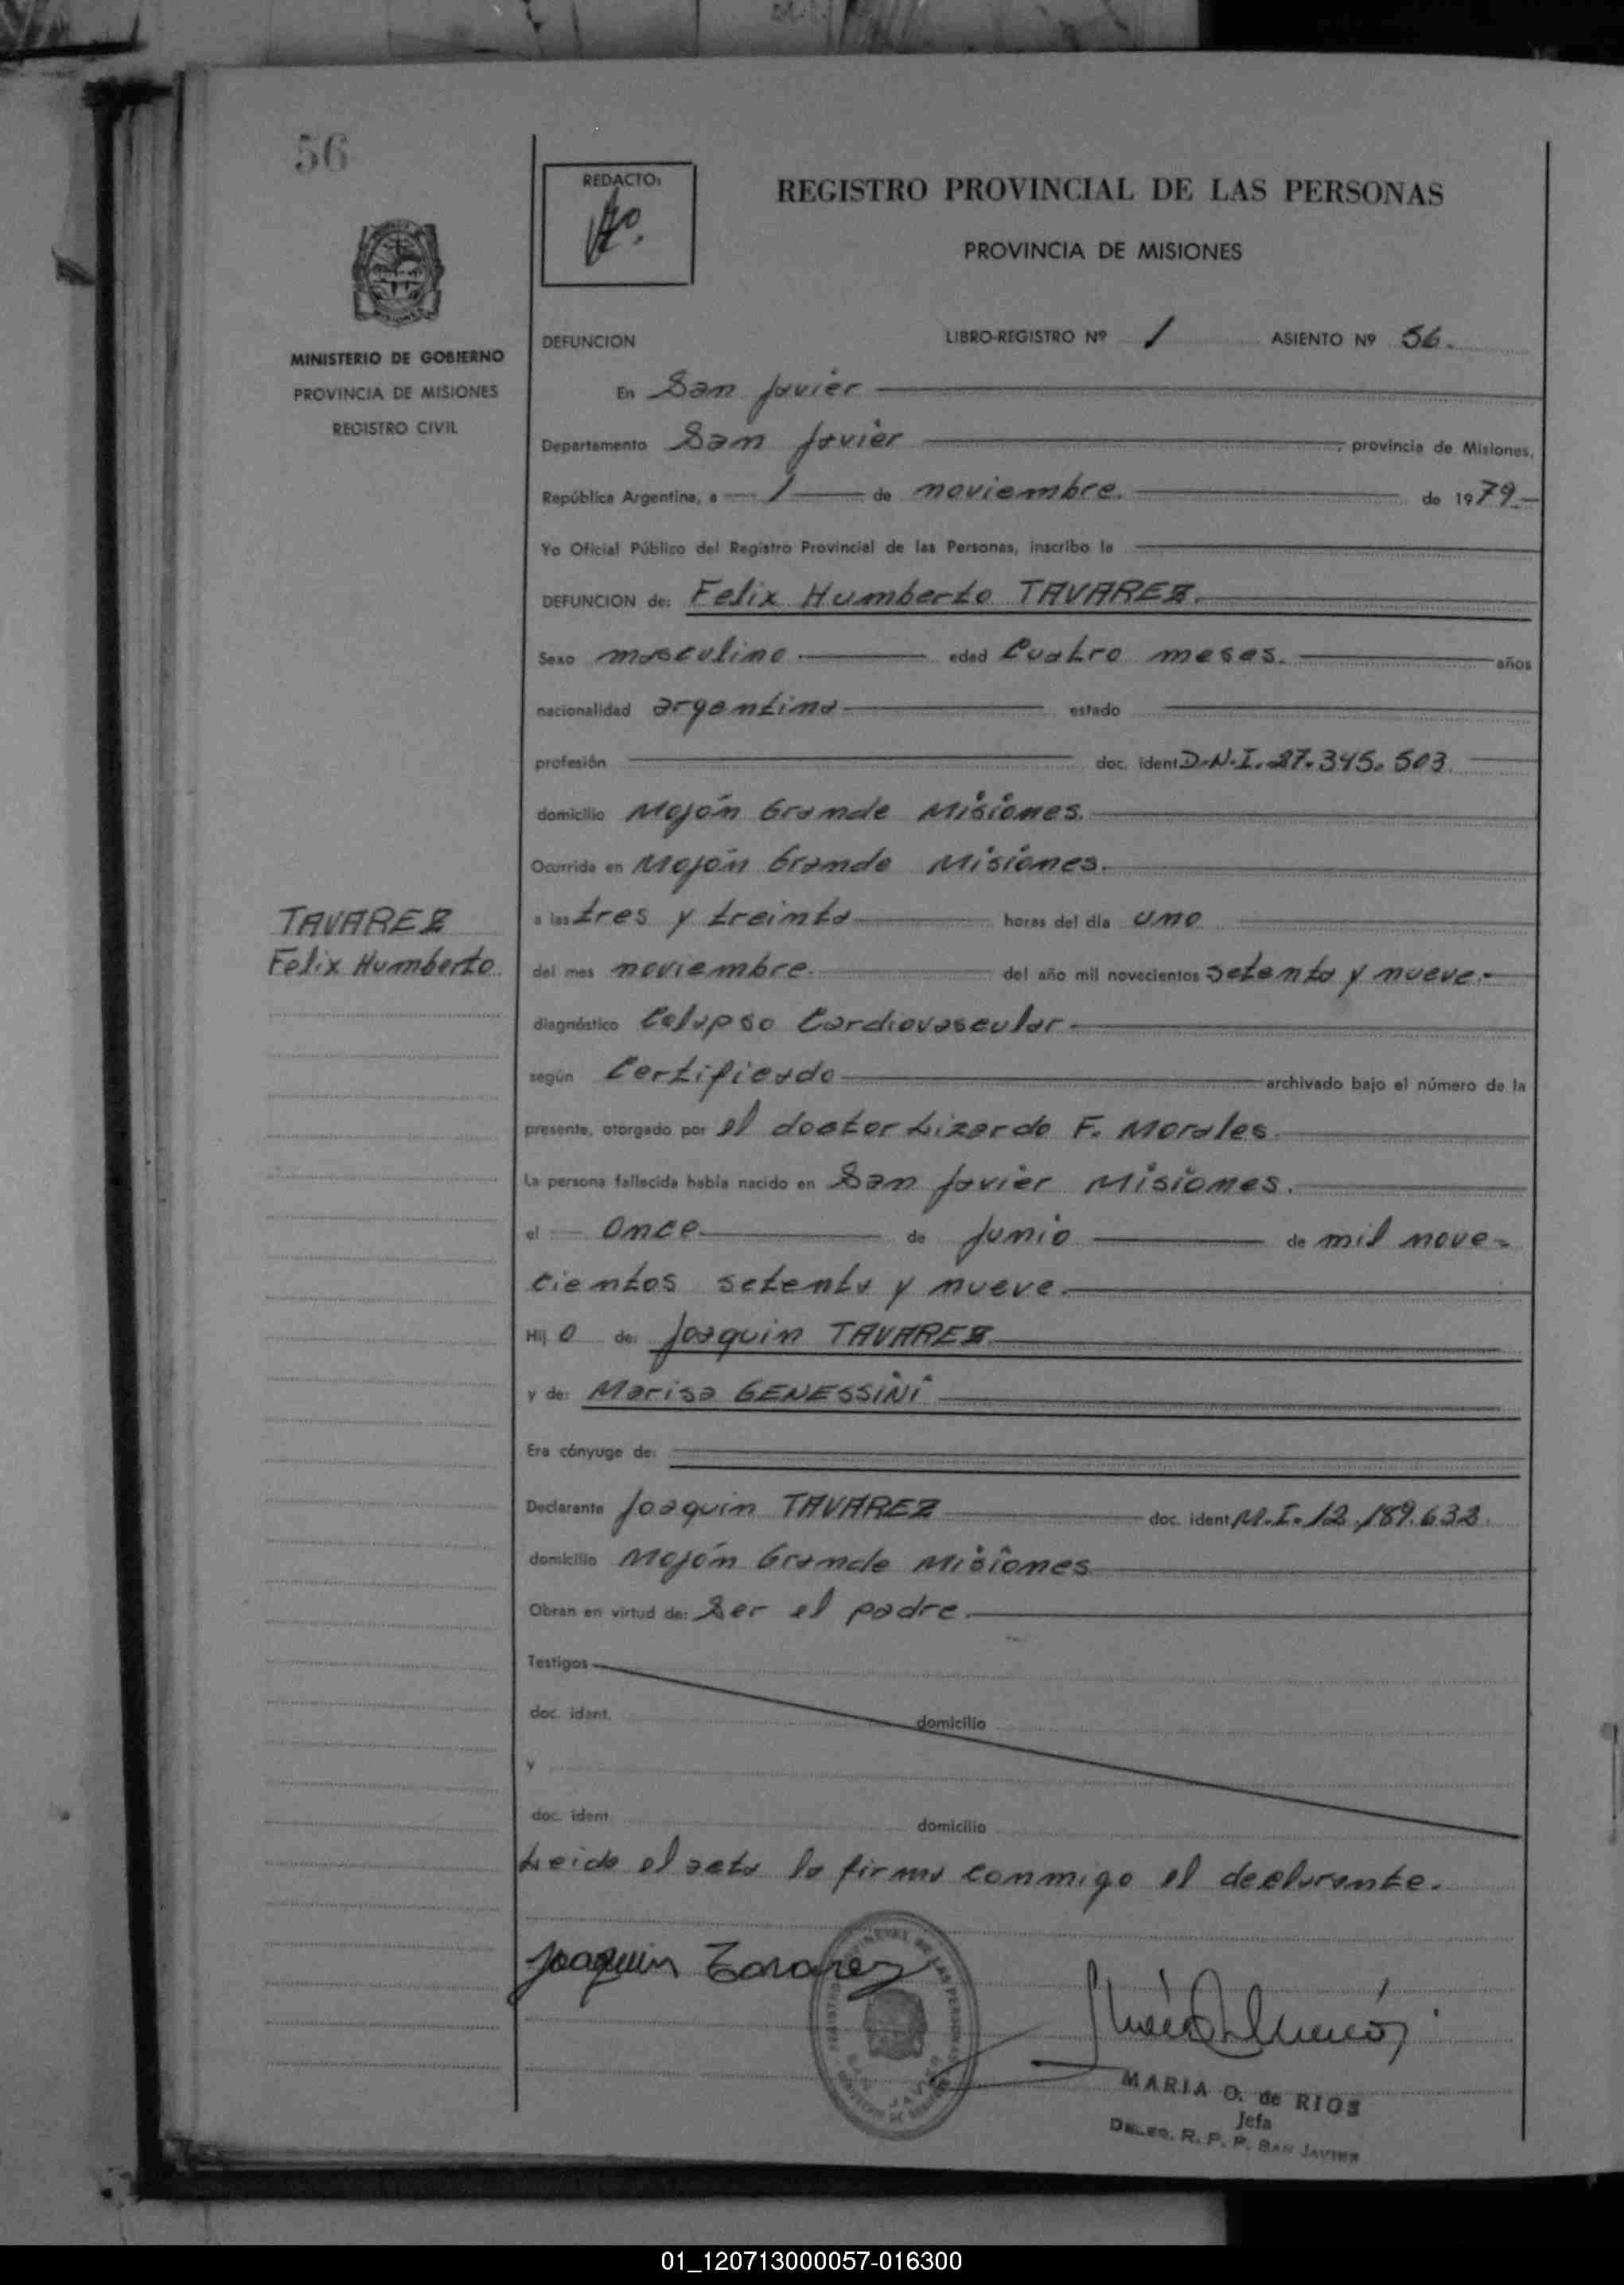 56
REDACTO:
REGISTRO PROVINCIAL DE LAS PERSONAS
PROVINCIA DE MISIONES
MINISTERIO DE GOBIERNO
PROVINCIA DE MISIONES
REGISTRO CIVIL
DEFUNCION LIBRO-REGISTRO Nº 1 ASIENTO Nº 56.
En San Javier
Departamento San Javier, provincia de Misiones,
República Argentina, a 1 de noviembre. de 1979-
Yo Oficial Público del Registro Provincial de las Personas, inscribo la
DEFUNCION de: Felix Humberto TAVAREZ.
Sexo masculino. edad Cuatro meses. años
nacionalidad argentina estado
profesión doc. ident D.N.I. 27.345.503
domicilio Mojón Grande Misiones.
Ocurrida en Mojón Grande Misiones.
TAVAREZ
Felix Humberto
a las tres y treinta horas del día uno
del mes noviembre. del año mil novecientos setenta y nueve.-
diagnóstico Colapso Cardiovascular.
según Certificado archivado bajo el número de la
presente, otorgado por el doctor Lizardo F. Morales.
La persona fallecida había nacido en San Javier Misiones.
el once de Junio de mil nove=
cientos setenta y nueve.
Hij o de: Joaquin TAVAREZ.
y de: Marisa GENESSINI
Era cónyuge de:
Declarante Joaquin TAVAREZ doc. ident M.I. 12.189.632.
domicilio Mojón Grande Misiones
Obran en virtud de: Ser el padre.
Testigos
doc. ident. domicilio
y
doc. ident domicilio
Leida el acta la firma conmigo el declarante.
Joaquin Tavarez
MARIA O. de RIOS
Jefa
DELEG. R. P. P. SAN JAVIER
01_120713000057-016300